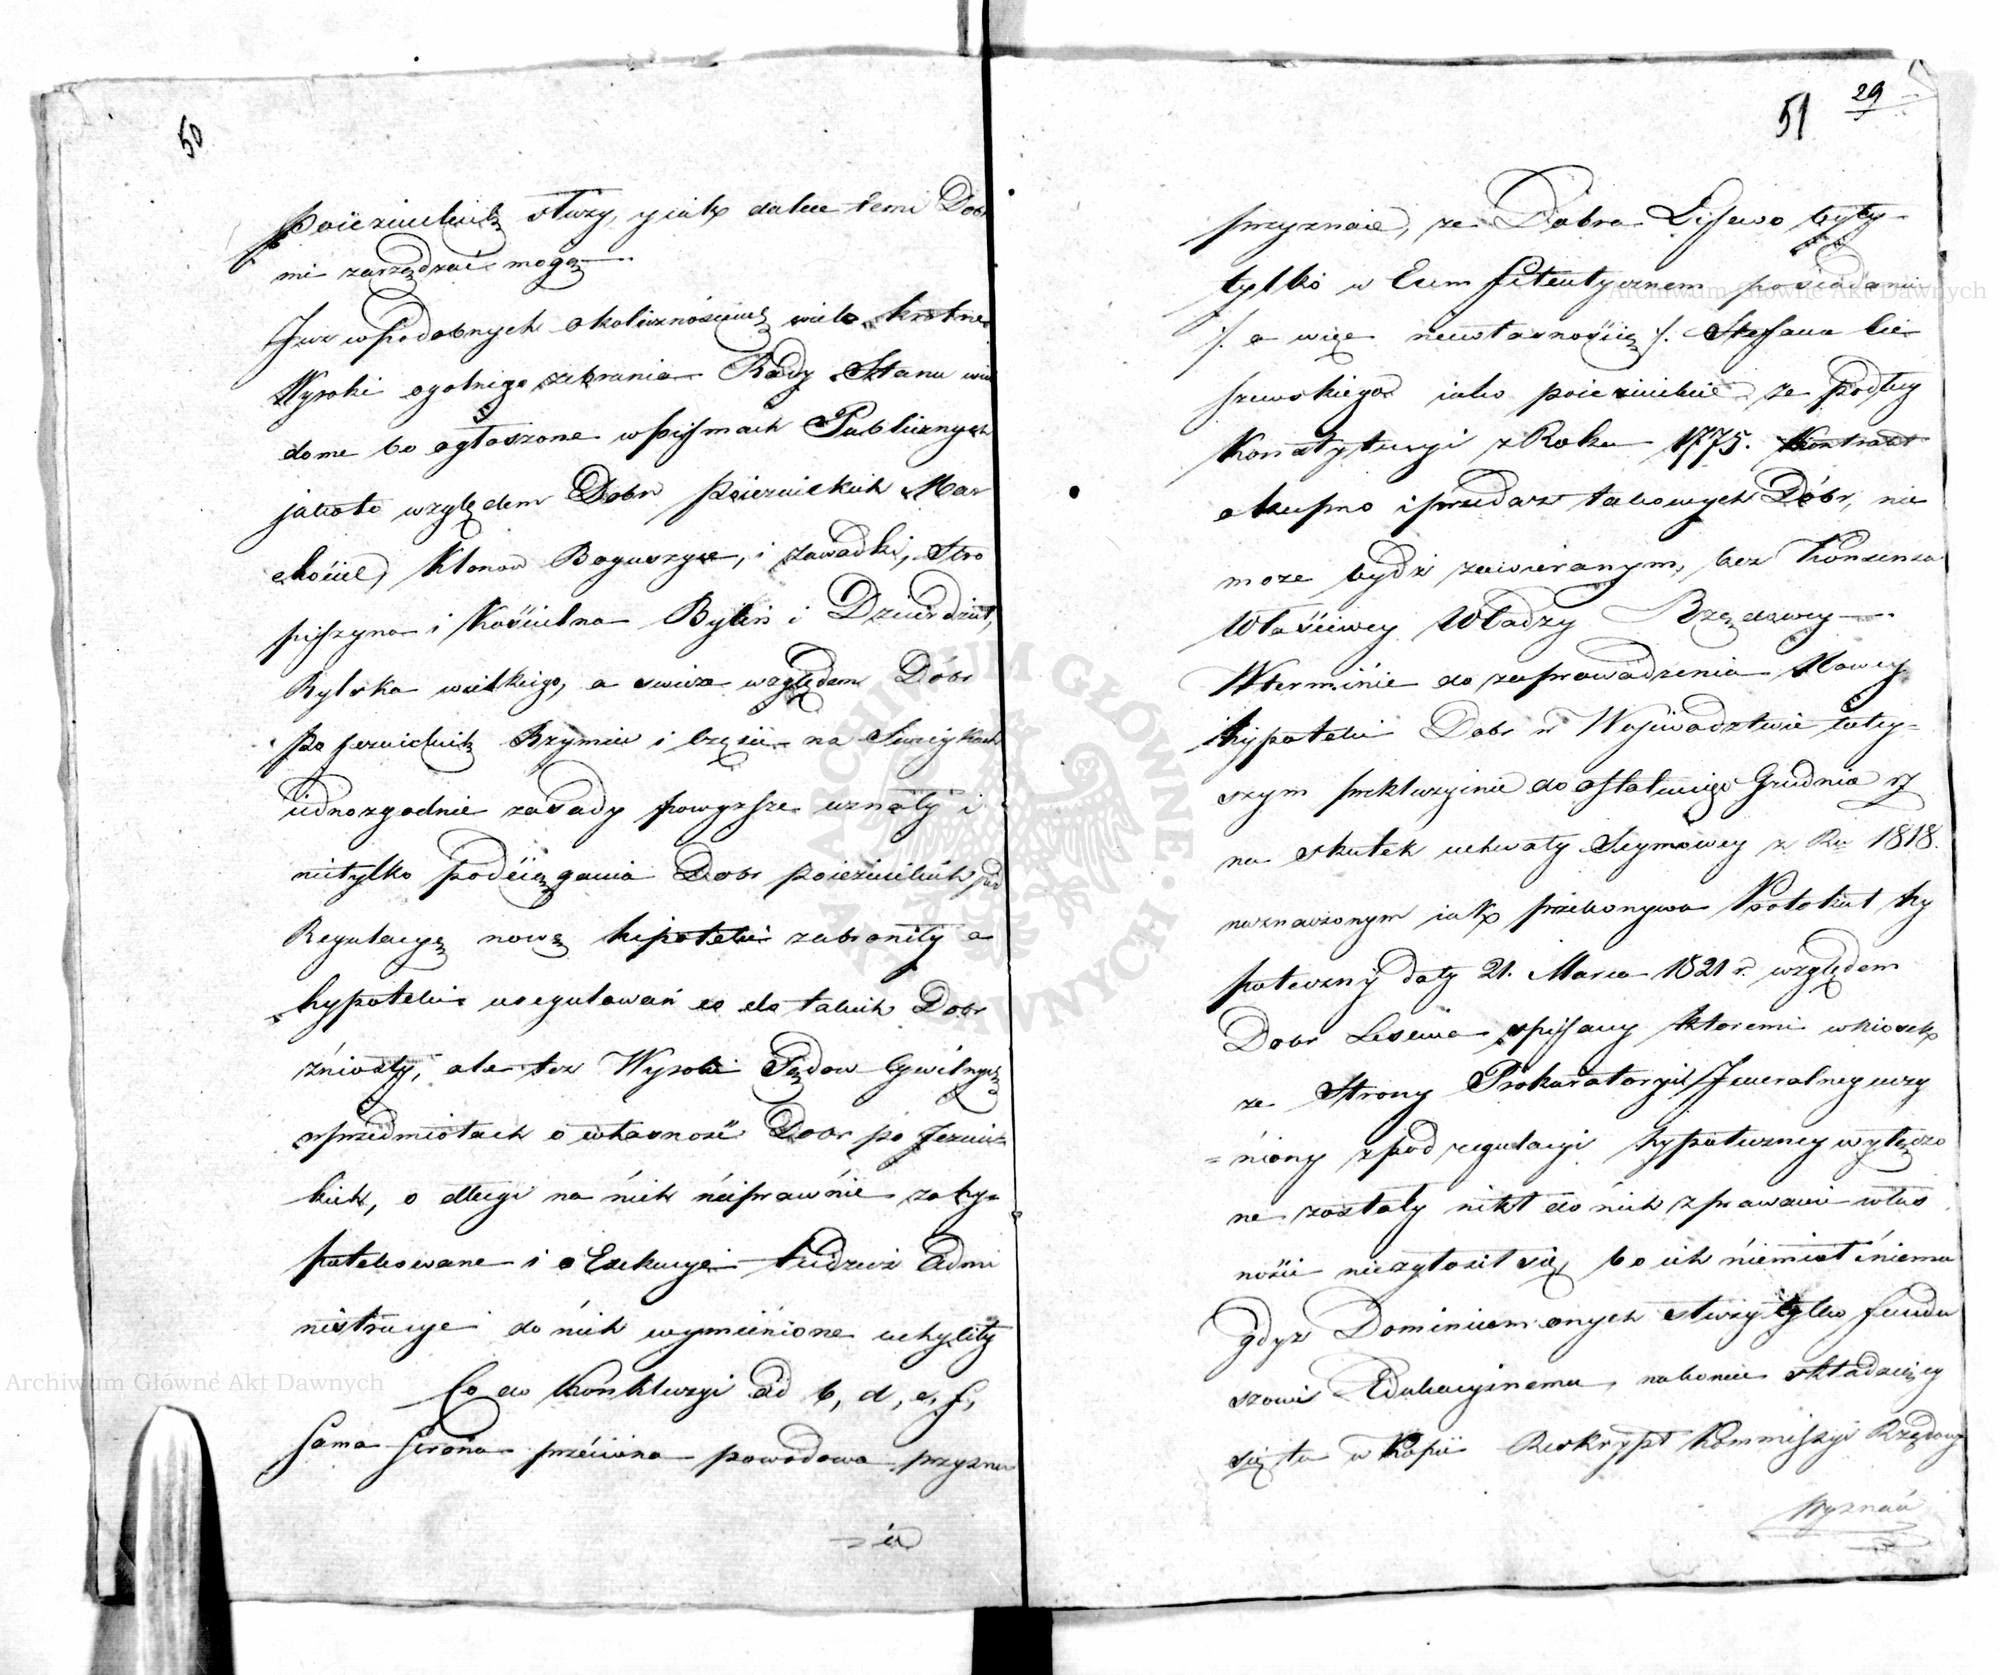 50
pojezuickich służy, y jak dalece temi Dob
mi zarządzać mogą
Juz w podobnych okolicznościach wielokrotne
Wyroki ogolnego zebrania Rady Stanu wia
dome bo ogłoszone w pismach Publicznych
jakoto względem Dobr pojezuickich Mar
Klonow Boguszyce, i Zawadki, Stro
i Kościelna Bylin i
Rylska wielkiego, a swieżo względem Dobr
po jezuickich Rzymiec i części na
iednozgodnie zasady powyższe uznały i
nietylko podciągania Dobr pojezuickich pod
Regulacyę nową hipoteki zabroniły a
hypoteki uregulowane co do takich Dobr
zniosły, ale tez Wyroki Sądow Cywilnych
w przedmiotach o własność Dobr po Jezuic=
kich, o długi na nich nieprawnie zahy=
potekowane i o Exekucye tudzież Admi
nistracye do nich wymienione uchyliły
Co do Konkluzyi ad b, d, e, f,
Sama Strona przeciwna powodowa przyzna
ie
51
29
przyznaie, ze Dobra Lisewo były
tylko w Emfiteutycznem posiadaniu
/. a więc niewłasnością ./ Stefana Lis
szewskiego iako poiezuickie, ze podług
Konstytucyi z Roku 1775. Kontrakt
o kupno i przedaż takowych Dóbr, nie
może bydź zawieranym, bez Konsensu
Właściwey Władzy Rządowey
W terminie do zaprowadzenia Nowey
hypoteki Dobr w Wojewodztwie tutey=
szym prekluzyinie do ostatniego Grudnia
na skutek uchwały Seymowey z Ru 1818.
naznaczonym iak przekonywa Protokuł hy
poteczny daty 21. Marca 1821 r. względem
Dobr Lisewa spisany ktoremi wniosek
ze Strony Prokuratoryi Jeneralney uczy
=niony zpod regulacyi hypoteczney wyłączo
ne zostały nikt do nich z prawami włas
ności niezgłosił się, bo ich niemiał i niema
gdyz Dominium onych służy tylko fundu
szowi Edukacyinemu, nakoniec składaiący
się tu w Kopii Reskrypt Kommissyi Rządowey
Wyznań